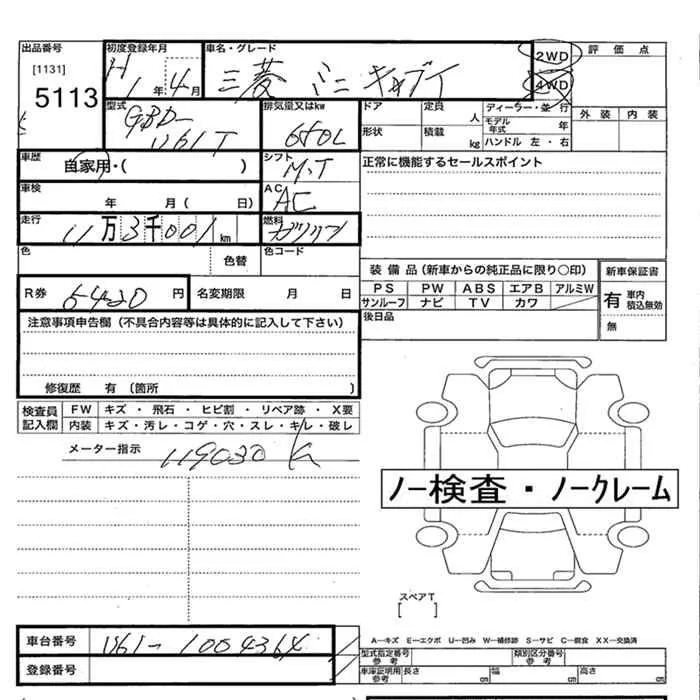 出品番号 初度登録年月 車名・グレード 2WD 評価点
[1131] H1年4月 三菱 ミニキャブ 4WD
5113
型式 排気量又はkw ドア 定員 人 ディーラー・並行 外装 内装
U61T 形状 積載 kg モデル年式 年
ハンドル 左・右
車歴 自家用・( ) シフト M.T 正常に機能するセールスポイント
車検 年 月( 日) AC AC
走行 11万3千001km 燃料 ガソリン
色 色替 色コード
装備品(新車からの純正品に限り○印) 新車保証書
R券 6420円 名変期限 月 日 PS PW ABS エアB アルミW 有 車内積込無効
サンルーフ ナビ TV カワ 無
注意事項申告欄(不具合内容等は具体的に記入して下さい) 後日品
修復歴 有 〔箇所 〕
検査員記入欄 FW キズ・飛石・ヒビ割・リペア跡・X要
内装 キズ・汚レ・コゲ・穴・スレ・キレ・破レ
メーター指示 119030 K
ノー検査・ノークレーム
スペアT
[ ]
車台番号 U61-
A―キズ E―エクボ U―凹み W―補修跡 S―サビ C―腐食 XX―交換済
登録番号 型式指定番号 参考 類別区分番号 参考
車庫証明用 参考 長さ cm 幅 cm 高さ cm